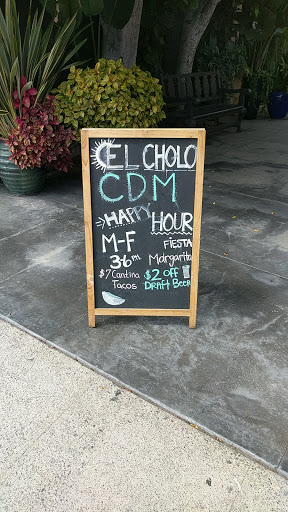 EL CHOLO
CDM
HAPPY HOUR
M-F
3-6 PM
$7 Cantina
Tacos
FiESTA
Margarita
$2 OFF
DRAFT BEER